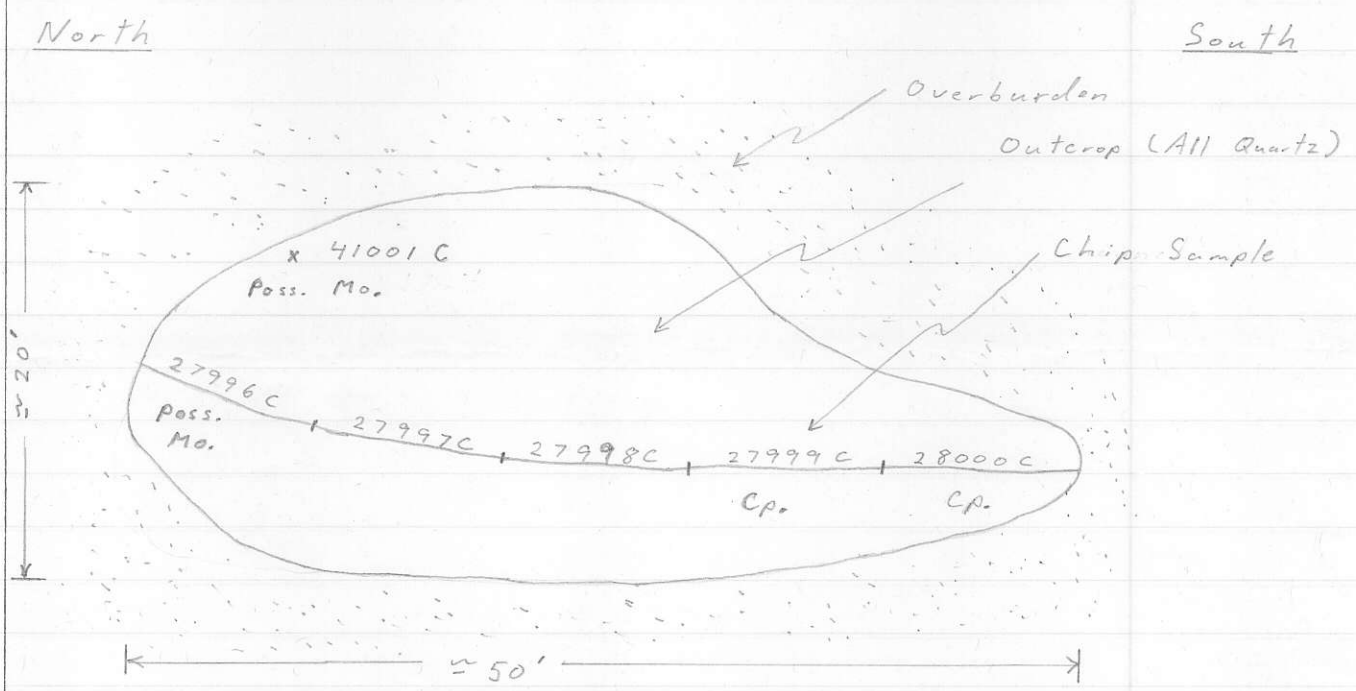 North
South
Overburden
Outcrop (All Quartz)
x 41001 C
Poss. Mo.
Chip Sample
≈ 20'
27996 C
Poss.
Mo.
27997C
27998C
27999C
28000C
Cp.
Cp.
≈ 50'